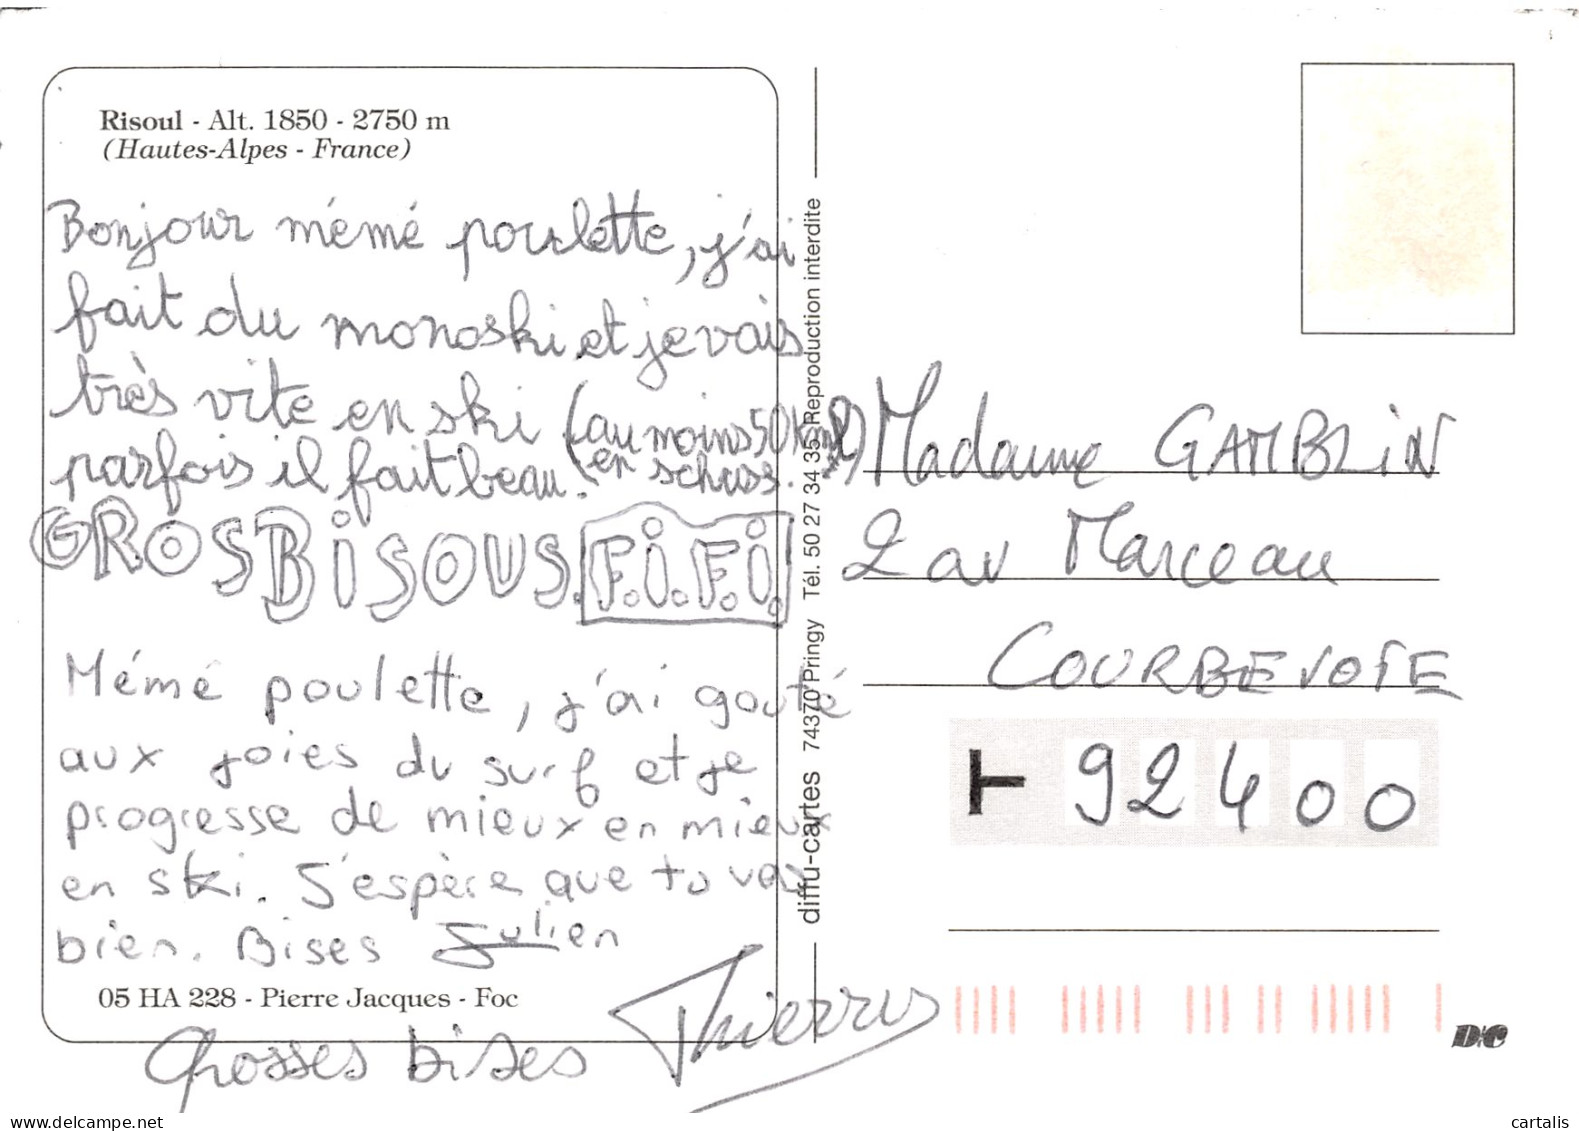 Risoul - Alt. 1850 - 2750 m
(Hautes-Alpes - France)
Bonjour mémé poulette, j'ai
fait du monoski et je vais
très vite en ski (au moins 50 km/h
en schuss.)
parfois il fait beau.
GROS BISOUS. F.i.F.i.
Mémé poulette, j'ai gouté
aux joies du surf et je
progresse de mieux en mieux
en ski. J'espère que tu vas
bien. Bises Julien
05 HA 228 - Pierre Jacques - Foc
Grosses bises Thierry
diffu-cartes 74370 Pringy Tél. 50 27 34 35 Reproduction interdite
Madame GAMBLiN
2 av Marceau
COURBEVOIE
92400
D/C
www.delcampe.net
cartalis